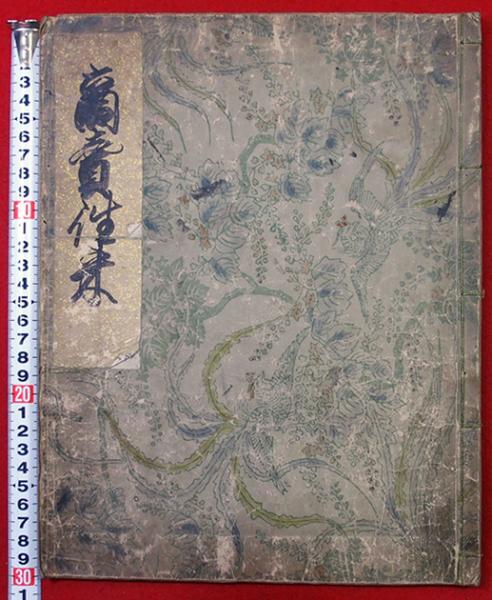 商賣往来
3
4
5
6
7
8
9
10
1
2
3
4
5
6
7
8
9
20
1
2
3
4
5
6
7
8
9
30
1